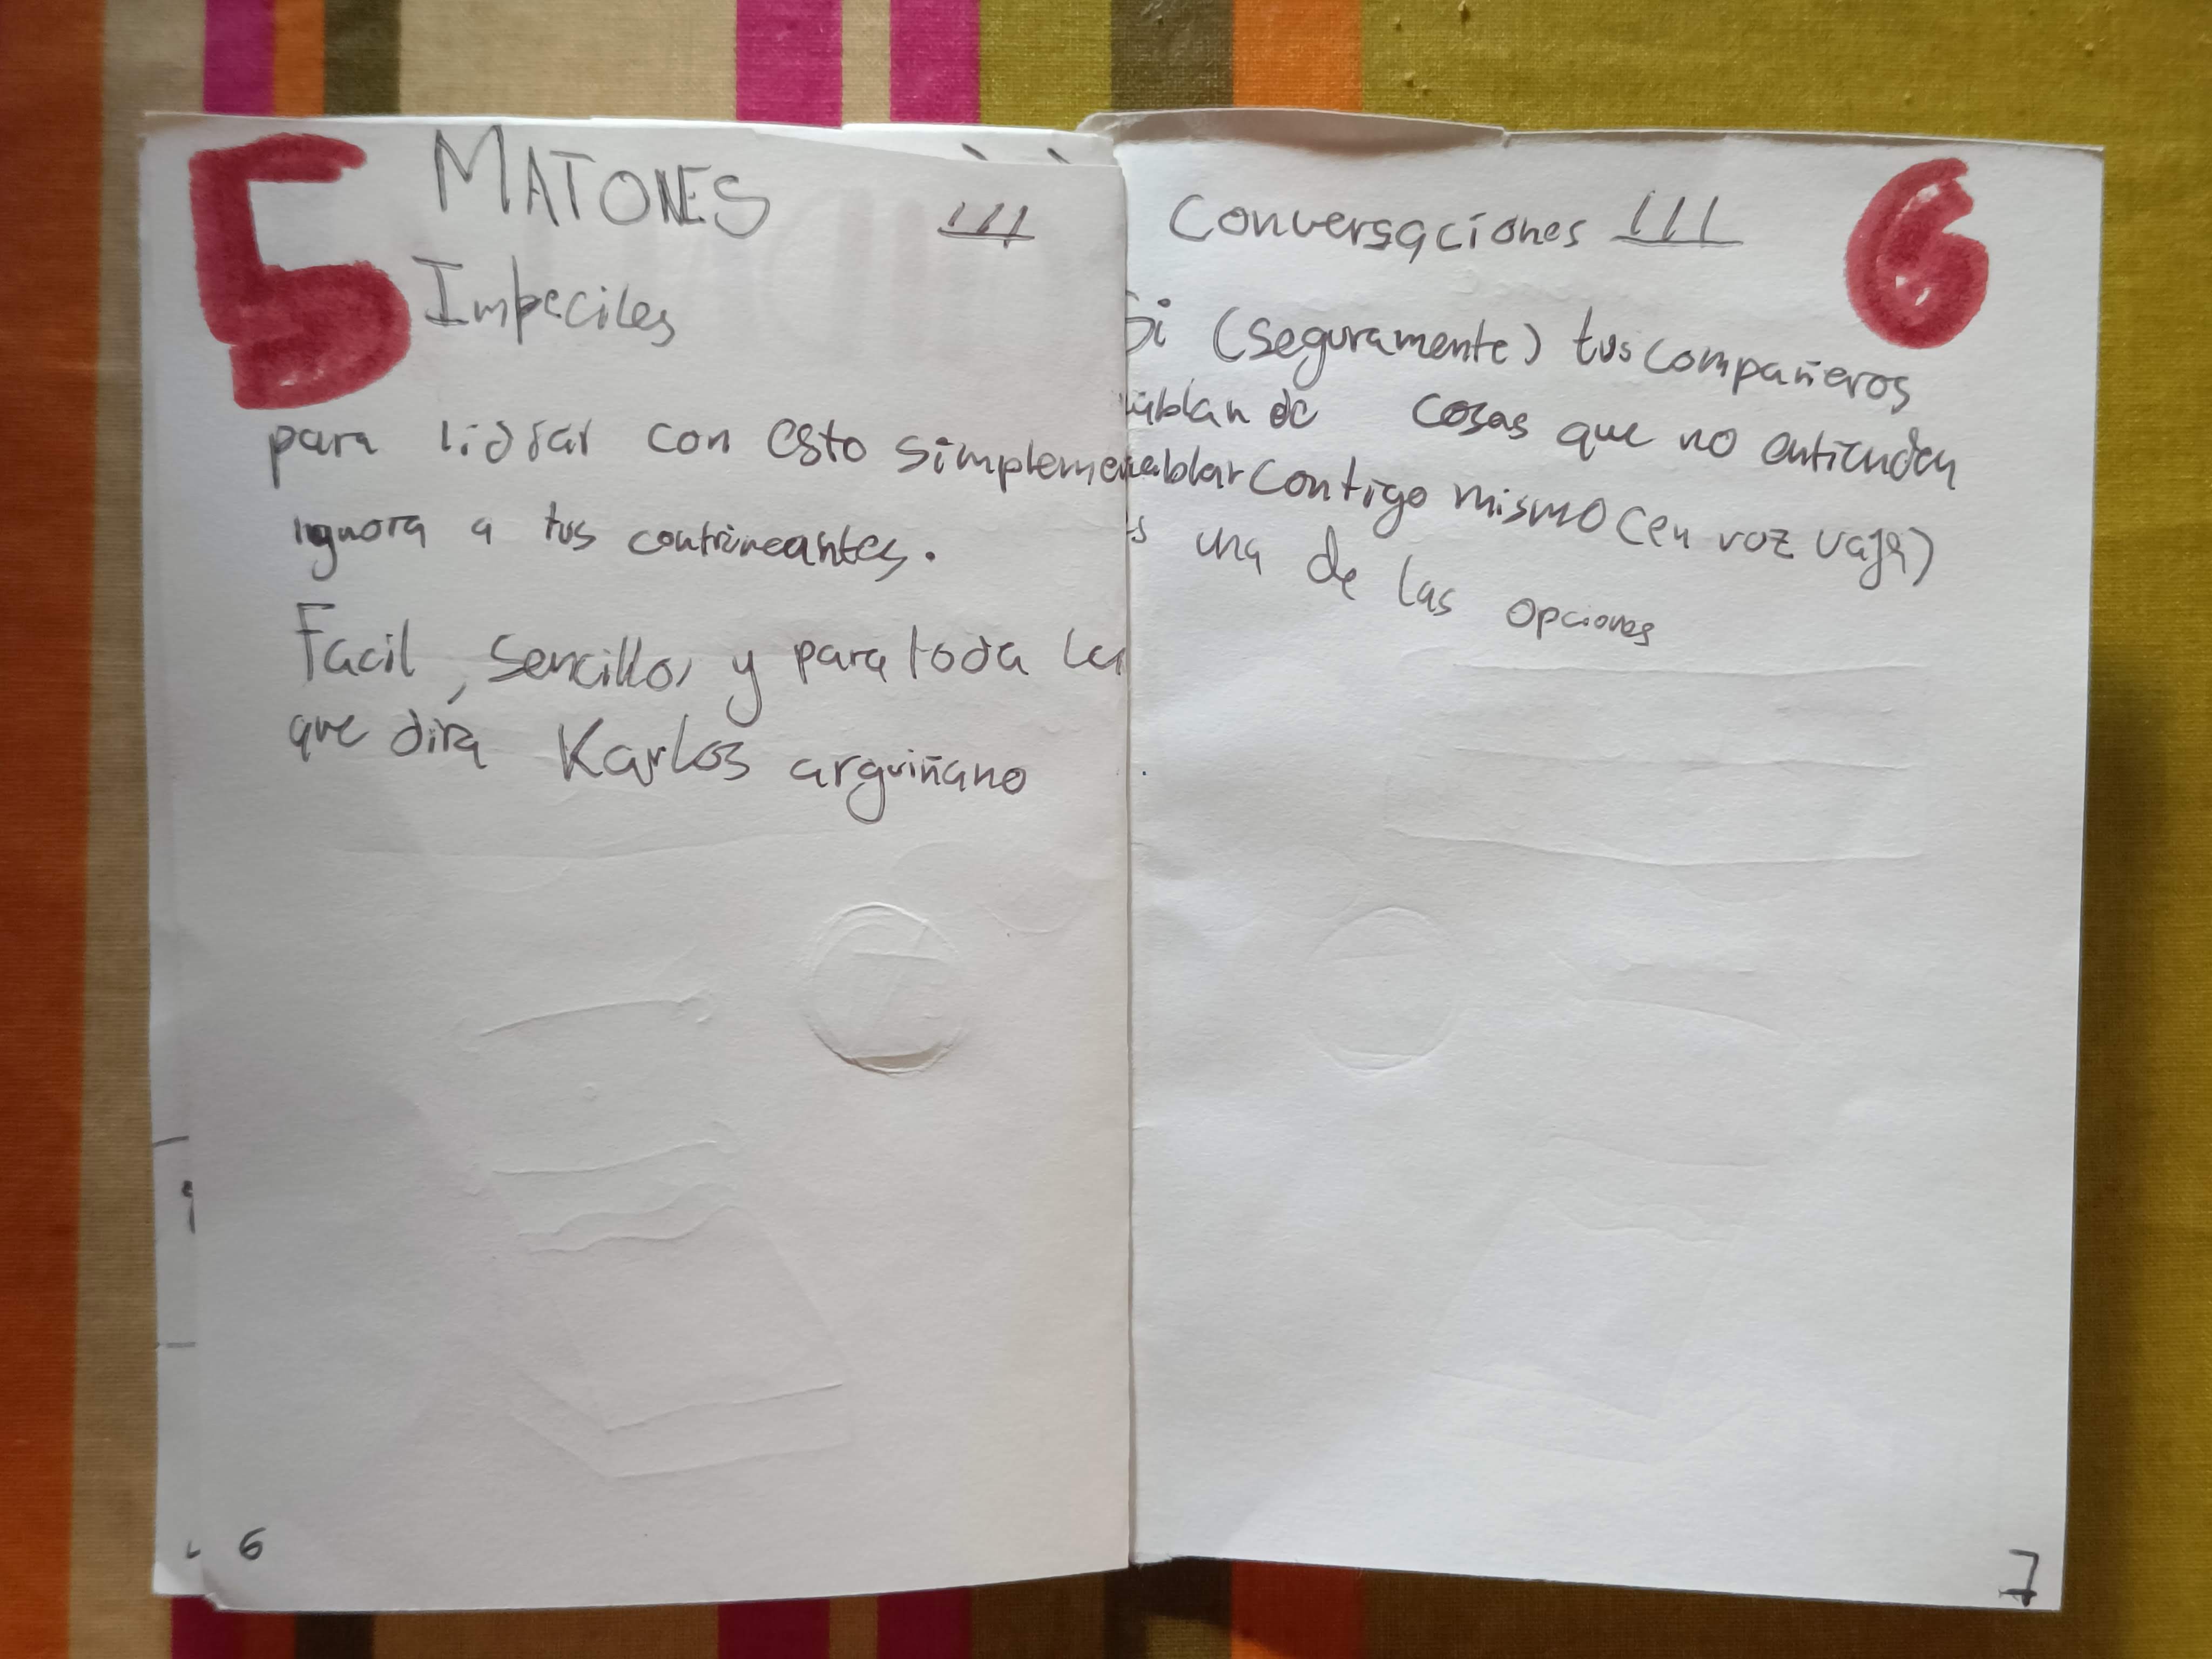 5
MATONES
Impeciles
para lidiar con esto simpleme
ignora a tus contrincantes.
Facil, sencillo, y para toda la
que dira Karlos arguiñano
6
Conversaciones
6
Si (seguramente) tus compañeros
hablan de cosas que no entienden
hablar contigo mismo (en voz vaja)
es una de las opciones
7